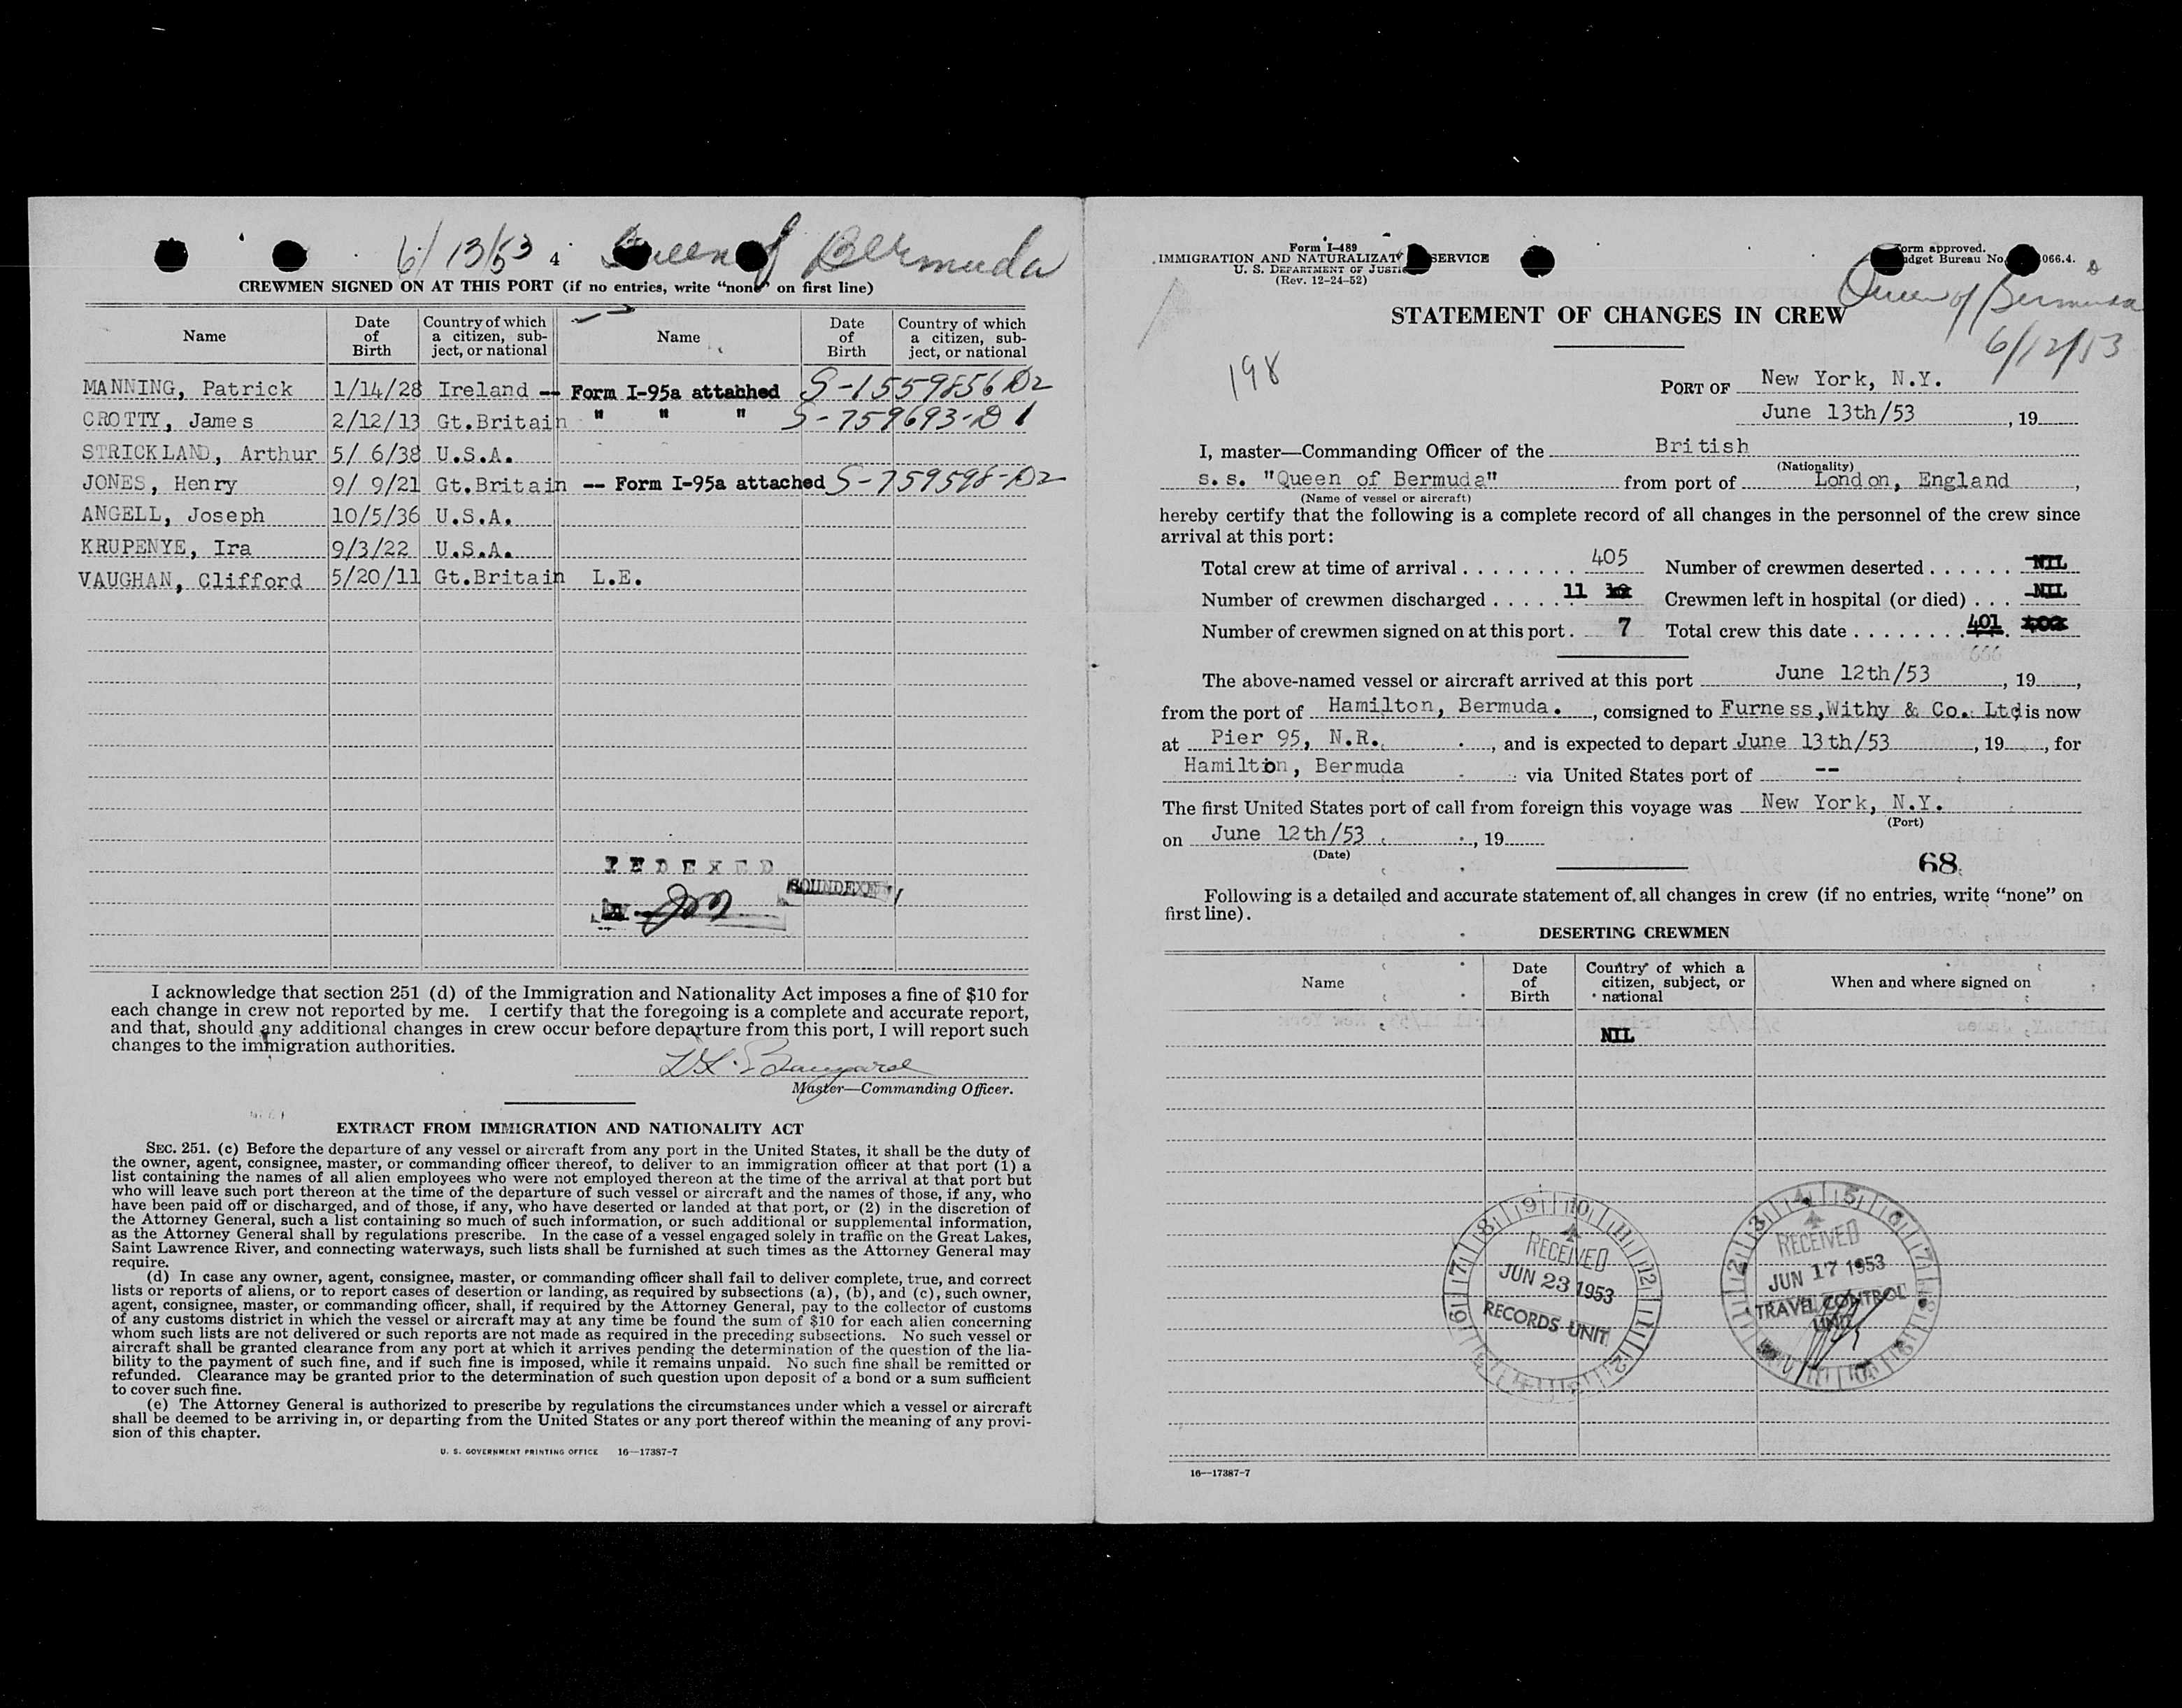 6/13/53 4 Queen of Bermuda
CREWMEN SIGNED ON AT THIS PORT (if no entries, write "none" on first line)
Name Date of Birth Country of which a citizen, sub-ject, or national Name Date of Birth Country of which a citizen, sub-ject, or national
MANNING, Patrick 1/14/28 Ireland -- Form I-95a attached S-1559856 D2
CROTTY, James 2/12/13 Gt.Britain " " " S-759693-D 1
STRICKLAND, Arthur 5/ 6/38 U.S.A.
JONES, Henry 9/ 9/21 Gt.Britain -- Form I-95a attached S-759598-D2
ANGELL, Joseph 10/5/36 U.S.A.
KRUPENYE, Ira 9/3/22 U.S.A.
VAUGHAN, Clifford 5/20/11 Gt.Britain L.E.
INDEXED
SOUNDEXED
I acknowledge that section 251 (d) of the Immigration and Nationality Act imposes a fine of $10 for
each change in crew not reported by me. I certify that the foregoing is a complete and accurate report,
and that, should any additional changes in crew occur before departure from this port, I will report such
changes to the immigration authorities.
Master—Commanding Officer.
EXTRACT FROM IMMIGRATION AND NATIONALITY ACT
SEC. 251. (c) Before the departure of any vessel or aircraft from any port in the United States, it shall be the duty of
the owner, agent, consignee, master, or commanding officer thereof, to deliver to an immigration officer at that port (1) a
list containing the names of all alien employees who were not employed thereon at the time of the arrival at that port but
who will leave such port thereon at the time of the departure of such vessel or aircraft and the names of those, if any, who
have been paid off or discharged, and of those, if any, who have deserted or landed at that port, or (2) in the discretion of
the Attorney General, such a list containing so much of such information, or such additional or supplemental information,
as the Attorney General shall by regulations prescribe. In the case of a vessel engaged solely in traffic on the Great Lakes,
Saint Lawrence River, and connecting waterways, such lists shall be furnished at such times as the Attorney General may
require.
(d) In case any owner, agent, consignee, master, or commanding officer shall fail to deliver complete, true, and correct
lists or reports of aliens, or to report cases of desertion or landing, as required by subsections (a), (b), and (c), such owner,
agent, consignee, master, or commanding officer, shall, if required by the Attorney General, pay to the collector of customs
of any customs district in which the vessel or aircraft may at any time be found the sum of $10 for each alien concerning
whom such lists are not delivered or such reports are not made as required in the preceding subsections. No such vessel or
aircraft shall be granted clearance from any port at which it arrives pending the determination of the question of the lia-
bility to the payment of such fine, and if such fine is imposed, while it remains unpaid. No such fine shall be remitted or
refunded. Clearance may be granted prior to the determination of such question upon deposit of a bond or a sum sufficient
to cover such fine.
(e) The Attorney General is authorized to prescribe by regulations the circumstances under which a vessel or aircraft
shall be deemed to be arriving in, or departing from the United States or any port thereof within the meaning of any provi-
sion of this chapter.
U. S. GOVERNMENT PRINTING OFFICE 16—17387-7
Form I-489
IMMIGRATION AND NATURALIZAT SERVICE
U. S. DEPARTMENT OF JUSTI
(Rev. 12-24-52)
orm approved.
dget Bureau No. 066.4.
Queen of Bermuda
6/12/53
STATEMENT OF CHANGES IN CREW
198
PORT OF New York, N.Y.
June 13th/53, 19
I, master—Commanding Officer of the British
(Nationality)
s.s. "Queen of Bermuda" from port of London, England,
(Name of vessel or aircraft)
hereby certify that the following is a complete record of all changes in the personnel of the crew since
arrival at this port:
Total crew at time of arrival . . . . . . . . 405 Number of crewmen deserted . . . . . . NIL
Number of crewmen discharged . . . . . . 11 Crewmen left in hospital (or died) . . . NIL
Number of crewmen signed on at this port . 7 Total crew this date . . . . . . . . 401
The above-named vessel or aircraft arrived at this port June 12th/53, 19,
from the port of Hamilton, Bermuda., consigned to Furness,Withy & Co. Ltd is now
at Pier 95, N.R., and is expected to depart June 13th/53, 19, for
Hamilton, Bermuda via United States port of --
The first United States port of call from foreign this voyage was New York, N.Y.
(Port)
on June 12th/53, 19
(Date)
68
Following is a detailed and accurate statement of all changes in crew (if no entries, write "none" on
first line).
DESERTING CREWMEN
Name Date of Birth Country of which a citizen, subject, or national When and where signed on
NIL
RECEIVED
JUN 23 1953
RECORDS UNIT
RECEIVED
JUN 17 1953
TRAVEL CONTROL
UNIT
16—17387-7